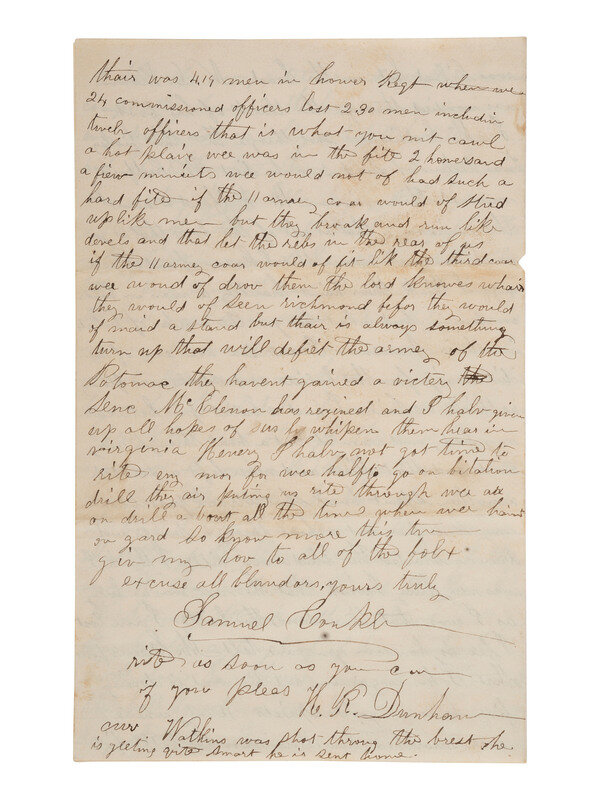 thair was 419 men in hower Regt when we
24 commissioned officers lost 230 men includin
twelv officers that is what you mit cawl
a hot plaice wee was in the fite 2 howers and
a fiew minuets wee would not of had such a
hard fite if the 11 armey coar would of stud
up like men but they broak and run like
devels and that let the rebs in the rear of us
if the 11 armey coar would of fit like the third coar
wee would of drov them the lord knowes whare
they would of seen richmond befor they would
of maid a stand but thair is always something
turn up that will defiet the armey of the
Potomac they havent gained a victery
senc Mc Clenon has regined and I halv given
up all hopes of us by whipen them hear in
virginia Henery I halv not got time to
rite eny mor for wee halft to go on bitalion
drill they air puting us rite through wee are
on drill a bout all the time when wee haint
on gard so know more this time
giv my lov to all of the folks
excuse all blundors, yours truly
Samuel Conkle
rite as soon as you can
if you pleas H. R. Dunham
Watkins was shot throug the brest he
is geeting rite smart he is sent home.